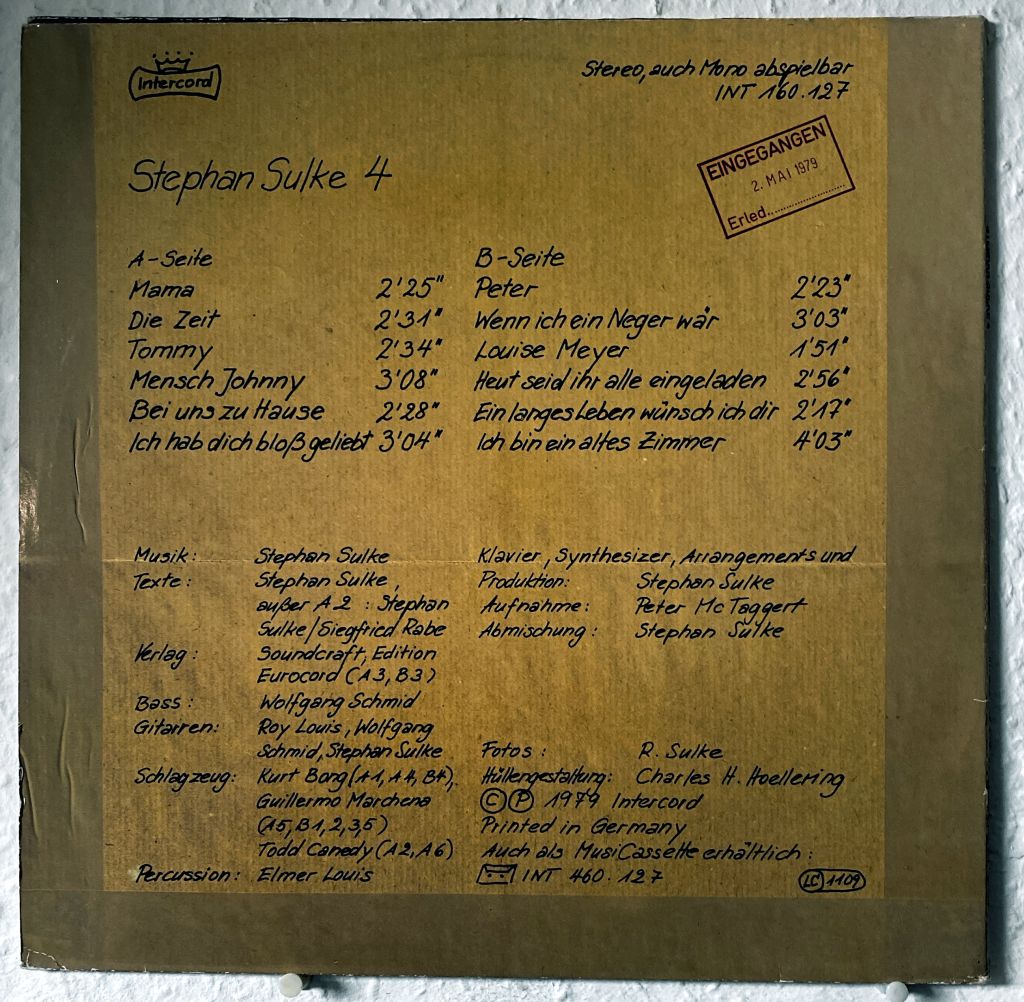 Intercord
Stereo, auch Mono abspielbar
INT 160.127
Stephan Sulke 4
EINGEGANGEN
2. MAI 1979
Erled..................
A-Seite
Mama 2'25"
Die Zeit 2'31"
Tommy 2'34"
Mensch Johnny 3'08"
Bei uns zu Hause 2'28"
Ich hab dich bloß geliebt 3'04"
B-Seite
Peter 2'23"
Wenn ich ein Neger wär 3'03"
Louise Meyer 1'51"
Heut seid ihr alle eingeladen 2'56"
Ein langes Leben wünsch ich dir 2'17"
Ich bin ein altes Zimmer 4'03"
Musik: Stephan Sulke
Texte: Stephan Sulke,
außer A2: Stephan
Sulke/Siegfried Rabe
Verlag: Soundcraft, Edition
Eurocord (A3, B3)
Bass: Wolfgang Schmid
Gitarren: Roy Louis, Wolfgang
Schmid, Stephan Sulke
Schlagzeug: Kurt Bong (A1, A4, B4),
Guillermo Marchena
(A5, B1,2,3,5)
Todd Canedy (A2, A6)
Percussion: Elmer Louis
Klavier, Synthesizer, Arrangements und
Produktion: Stephan Sulke
Aufnahme: Peter Mc Taggert
Abmischung: Stephan Sulke
Fotos: R. Sulke
Hüllengestaltung: Charles H. Hoellering
© ℗ 1979 Intercord
Printed in Germany
Auch als MusiCassette erhältlich:
INT 460.127
LC 1109